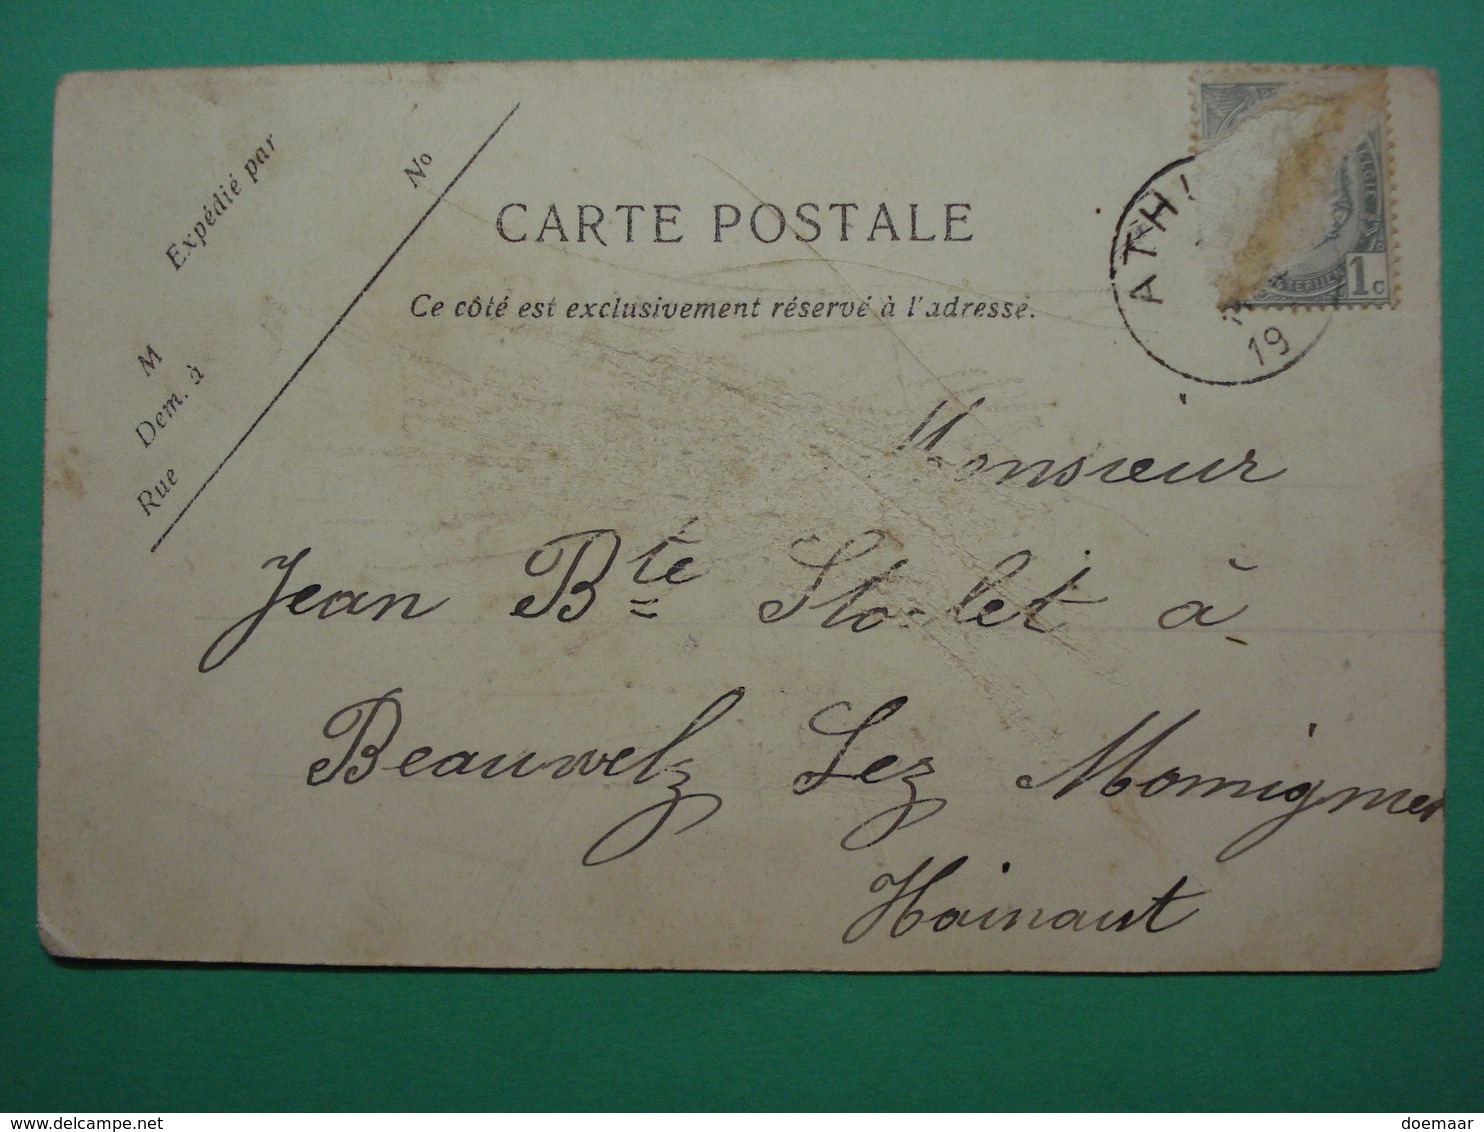 Expédié par
No
M
Dem. à
Rue
CARTE POSTALE
Ce côté est exclusivement réservé à l'adresse.
ATH
19
1c
Monsieur
Jean Bte à
Beauwelz Lez Momignies
Hainaut
delcampe.net
doemaar